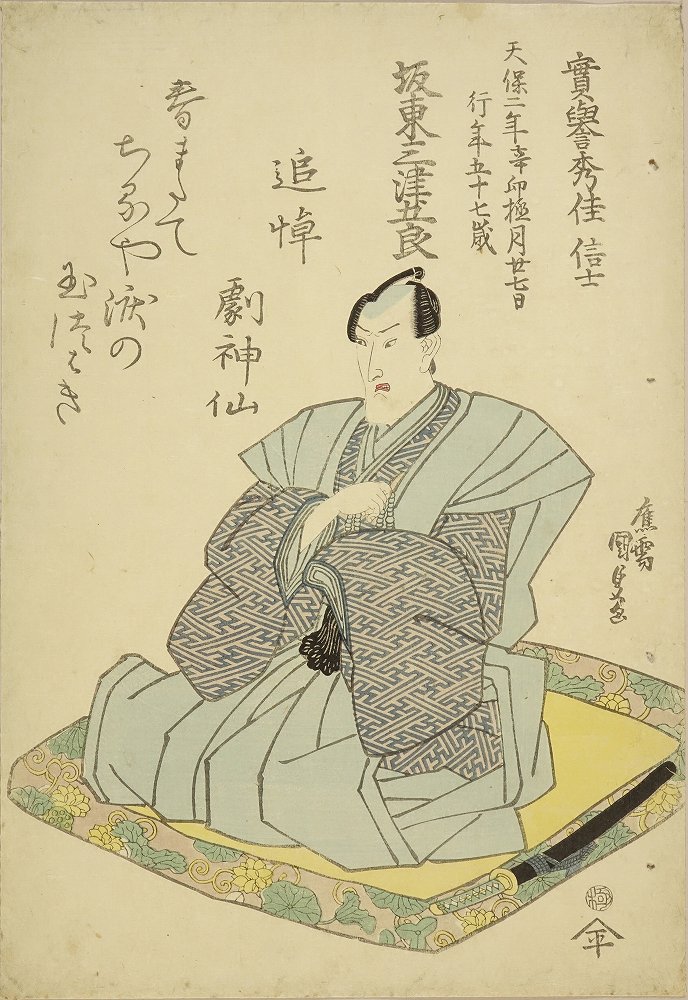 實譽秀佳信士
天保二年辛卯極月廿七日
行年五十七歳
坂東三津五良
追悼
劇神仙
春またで
ちるや涙の
玉つばき
應需
國貞画
極
平